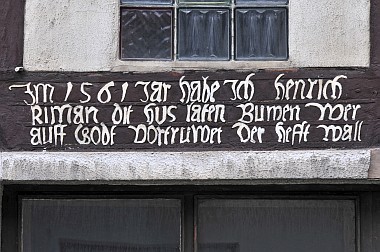 Im 1561 Jar habe Ich henrich
Riman dit hus laten Buwen wer
auff Godt vortruwet der hefft wall